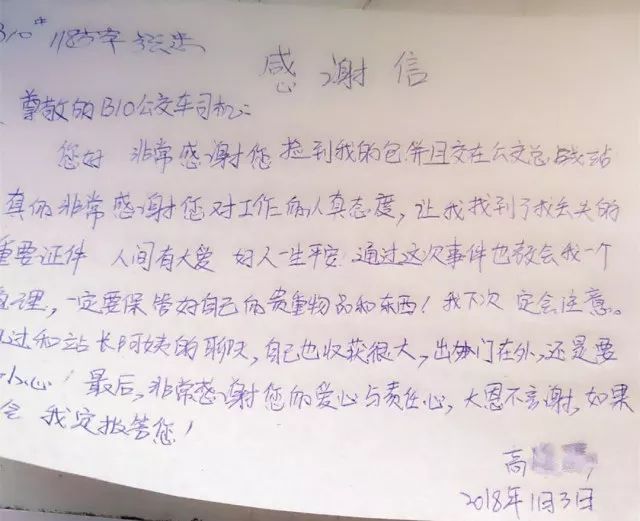 B10# 118
感谢信
尊敬的B10公交车司机:
您好 非常感谢您捡到我的包併且交在公交总站
真的非常感谢您对工作的认真态度,让我找到了我丢失的
重要证件 人间有大爱 好人一生平安 通过这次事件也教会我一个
道理,一定要保管好自己的贵重物品和东西!我下次 定会注意。
通过和站长阿姨的聊天,自己也收获很大,出门在外,还是要
小心!最后,非常感谢您的爱心与责任心,大恩不言谢,如果
我定报答您!
高
2018年1月3日